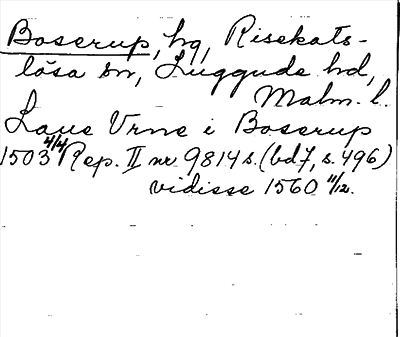 Boserup, hg, Risekats-
lösa sn, Luggude hd,
Malm. l.
Laue Urne i Boserup
1503 4/4 Rep. II nr 9814 s. (bd 7, s. 496)
vidisse 1560 11/12.